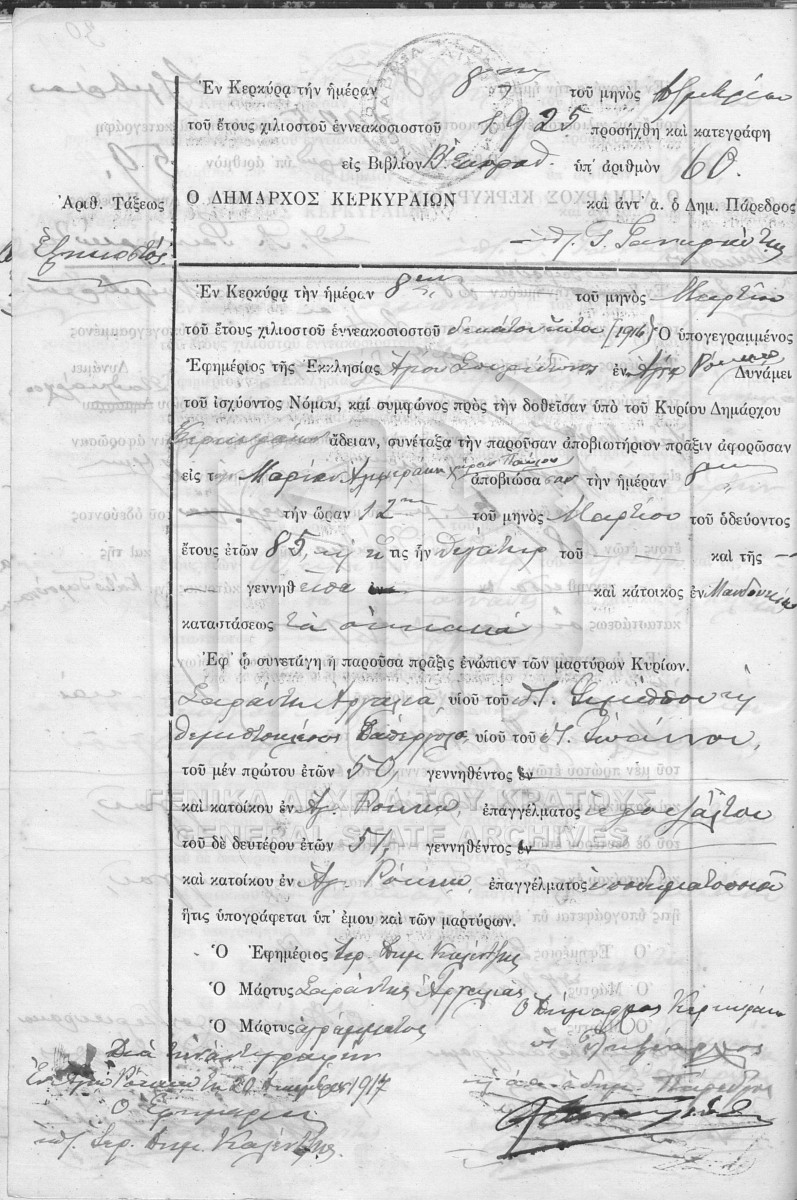 Ἐν Κερκύρᾳ τὴν ἡμέραν 8ην τοῦ μηνὸς
τοῦ ἔτους χιλιοστοῦ ἐννεακοσιοστοῦ 1925 προσήχθη καὶ κατεγράφη
εἰς Βιβλίον ὑπ' ἀριθμὸν 60.
Ἀριθ. Τάξεως
Ο ΔΗΜΑΡΧΟΣ ΚΕΡΚΥΡΑΙΩΝ καὶ ἀντ' α. ὁ Δημ. Πάρεδρος
Ἐν Κερκύρᾳ τὴν ἡμέραν 8ην τοῦ μηνὸς Μαρτίου
τοῦ ἔτους χιλιοστοῦ ἐννεακοσιοστοῦ δεκάτου ἕκτου (1916) Ὁ ὑπογεγραμμένος
Ἐφημέριος τῆς Ἐκκλησίας Ἁγίου Σπυρίδωνος ἐν Ἁγίῳ Ρόκκῳ Δυνάμει
τοῦ ἰσχύοντος Νόμου, καὶ συμφώνος πρὸς τὴν δοθεῖσαν ὑπὸ τοῦ Κυρίου Δημάρχου
Κερκυραίων ἄδειαν, συνέταξα τὴν παροῦσαν ἀποβιωτήριον πρᾶξιν ἀφορῶσαν
εἰς τ Μαρίαν χήραν Παύλου ἀποβιώσασαν τὴν ἡμέραν 8ην
τὴν ὥραν 12ην τοῦ μηνὸς Μαρτίου τοῦ ὁδεύοντος
ἔτους ἐτῶν 85, ἥτις ἦν θυγάτηρ τοῦ — καὶ τῆς —
— γεννηθεῖσα ἐν — καὶ κάτοικος ἐν Μανδουκίῳ
καταστάσεως τὰ οἰκιακά
Ἐφ' ᾧ συνετάγη ἡ παροῦσα πρᾶξις ἐνώπιεν τῶν μαρτύρων Κυρίων.
Σαράντης υἱοῦ τοῦ
Θεμιστοκλέους υἱοῦ τοῦ π. Ἰωάννου,
τοῦ μὲν πρώτου ἐτῶν 50, γεννηθέντος ἐν —
καὶ κατοίκου ἐν Ἁγ. Ρόκκῳ, ἐπαγγέλματος
ΓΕΝΙΚΑ ΑΡΧΕΙΑ ΤΟΥ ΚΡΑΤΟΥΣ
GENERAL STATE ARCHIVES
τοῦ δὲ δευτέρου ἐτῶν 51, γεννηθέντος ἐν —
καὶ κατοίκου ἐν Ἁγ. Ρόκκῳ, ἐπαγγέλματος ὑποδηματοποιοῦ
ἥτις ὑπογράφεται ὑπ' ἐμου καὶ τῶν μαρτύρων.
Ὁ Ἐφημέριος Ἱερ. Δημ. Καλέντζης
Ὁ Μάρτυς Σαράντης
Ὁ Μάρτυς ἀγράμματος
Ὁ Δήμαρχος Κερκυραίων
Διὰ τὴν ἀντιγραφὴν
1917
Ὁ Ἐφημέριος
Ἱερ. Δημ. Καλέντζης